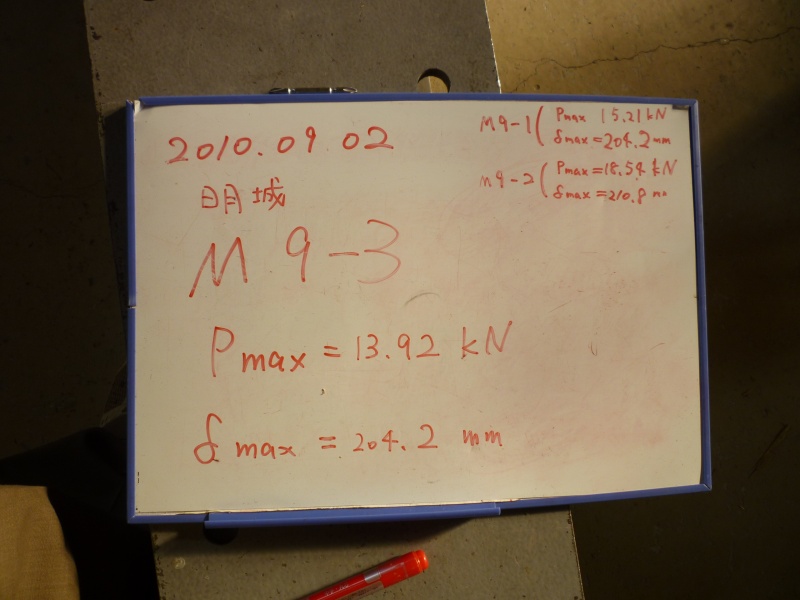 2010.09 02
明城
M9-3
Pmax = 13.92 kN
δmax = 204.2 mm
M9-1( Pmax 15.21 kN
δmax=204.2 mm
M9-2( Pmax=18.54 kN
δmax=210.8 mm